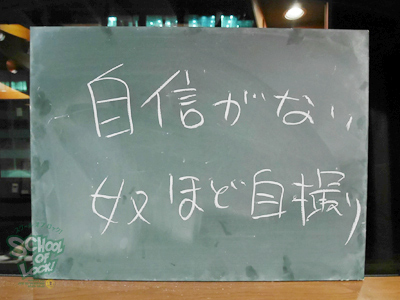 自信がない
奴ほど自撮り
SCHOOL
OF
LOCK!